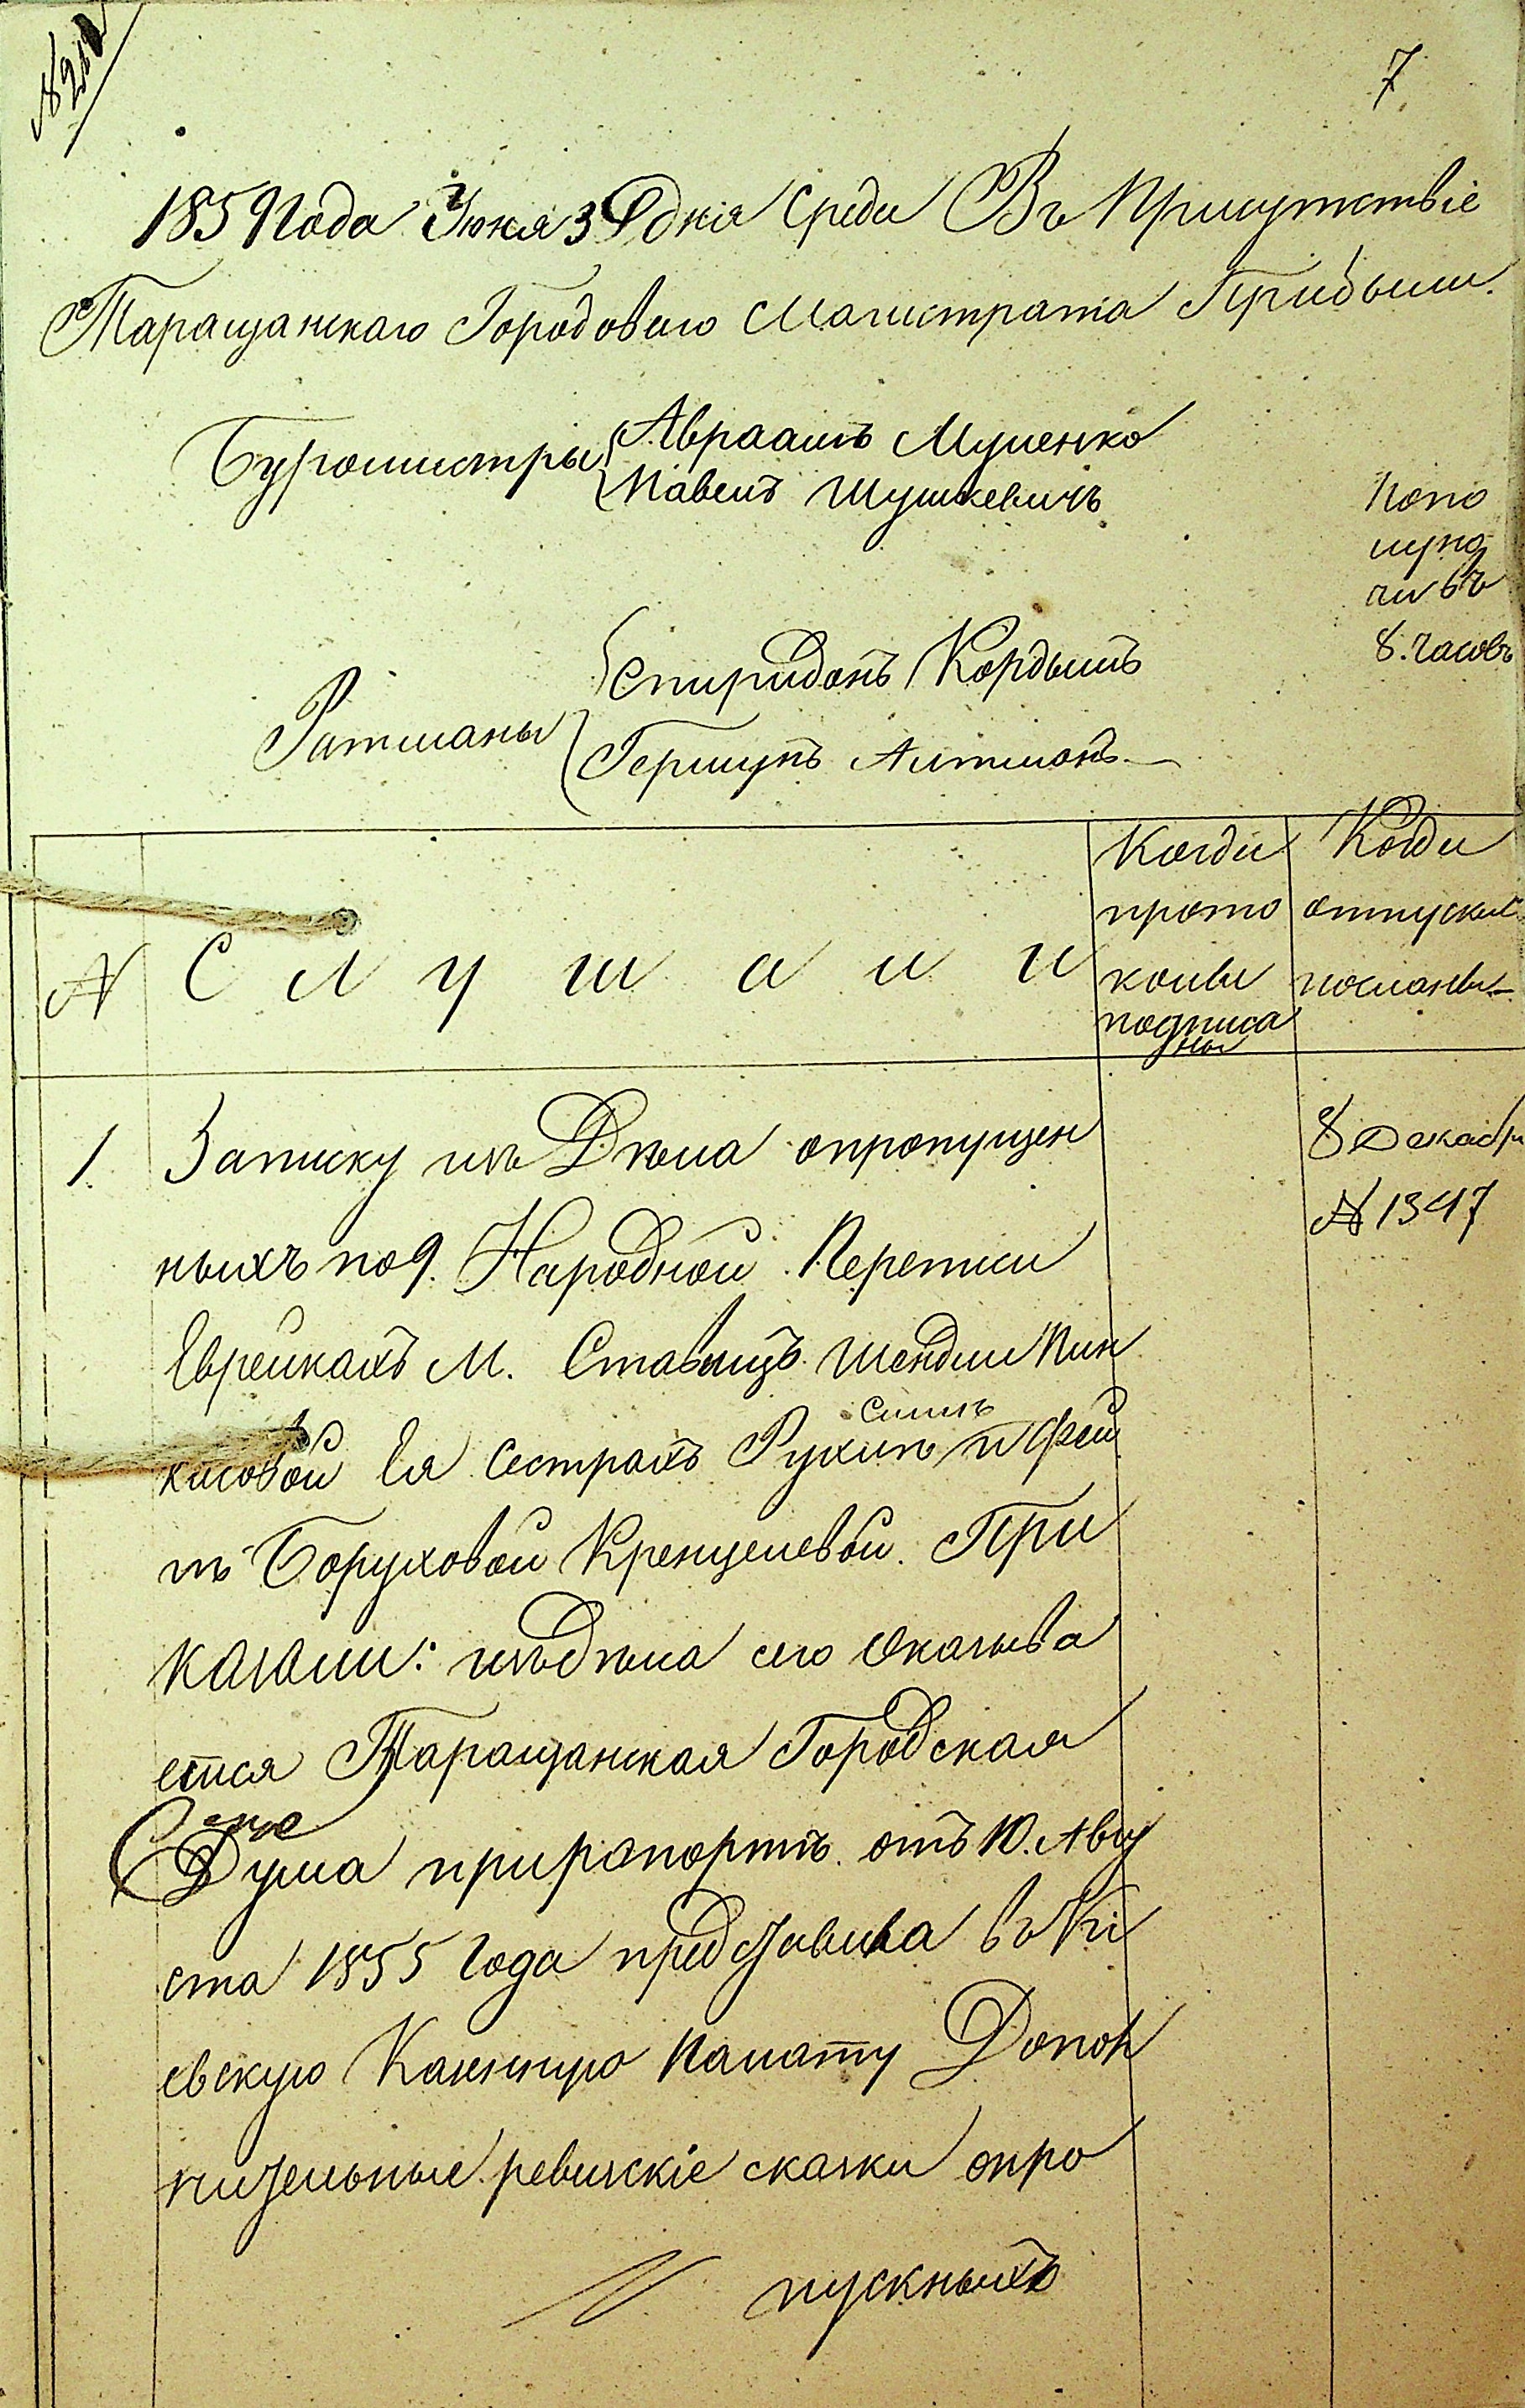 № 212
7
1859 Года Июня 3 дня Среди Въ Присутствіе
Таращанскаго Городоваго Магистрата Прибыли.
Бургомистры
Авраамъ Мушенко
Павелъ Шушкевичъ
попо
лунд
чи въ
8. часовъ
Ратманы
Спиридонъ Кордышъ
Гершунъ Алтманъ
№
Слушали
Когда
прото
колы
подписа
ны
Когда
отпуски
посланы
1.
Записку изъ Дѣла опропущен
ныхъ по 9. Народной Переписи
Еврейкахъ М. Ставищъ Шендли Пин
кисовой Ея Сестрахъ Рухлѣ и Фей
гѣ Боруховой Кренцелевой. При
казали: изъ дѣла сего Оказыва
ется Таращанская Городская
Дума при рапортѣ отъ 10. Авгу
ста 1855 Года представила въ Кі
евскую Казенную Палату Допол
нительные ревизскіе сказки опро
пускныхъ
8 Декабр
№ 1347